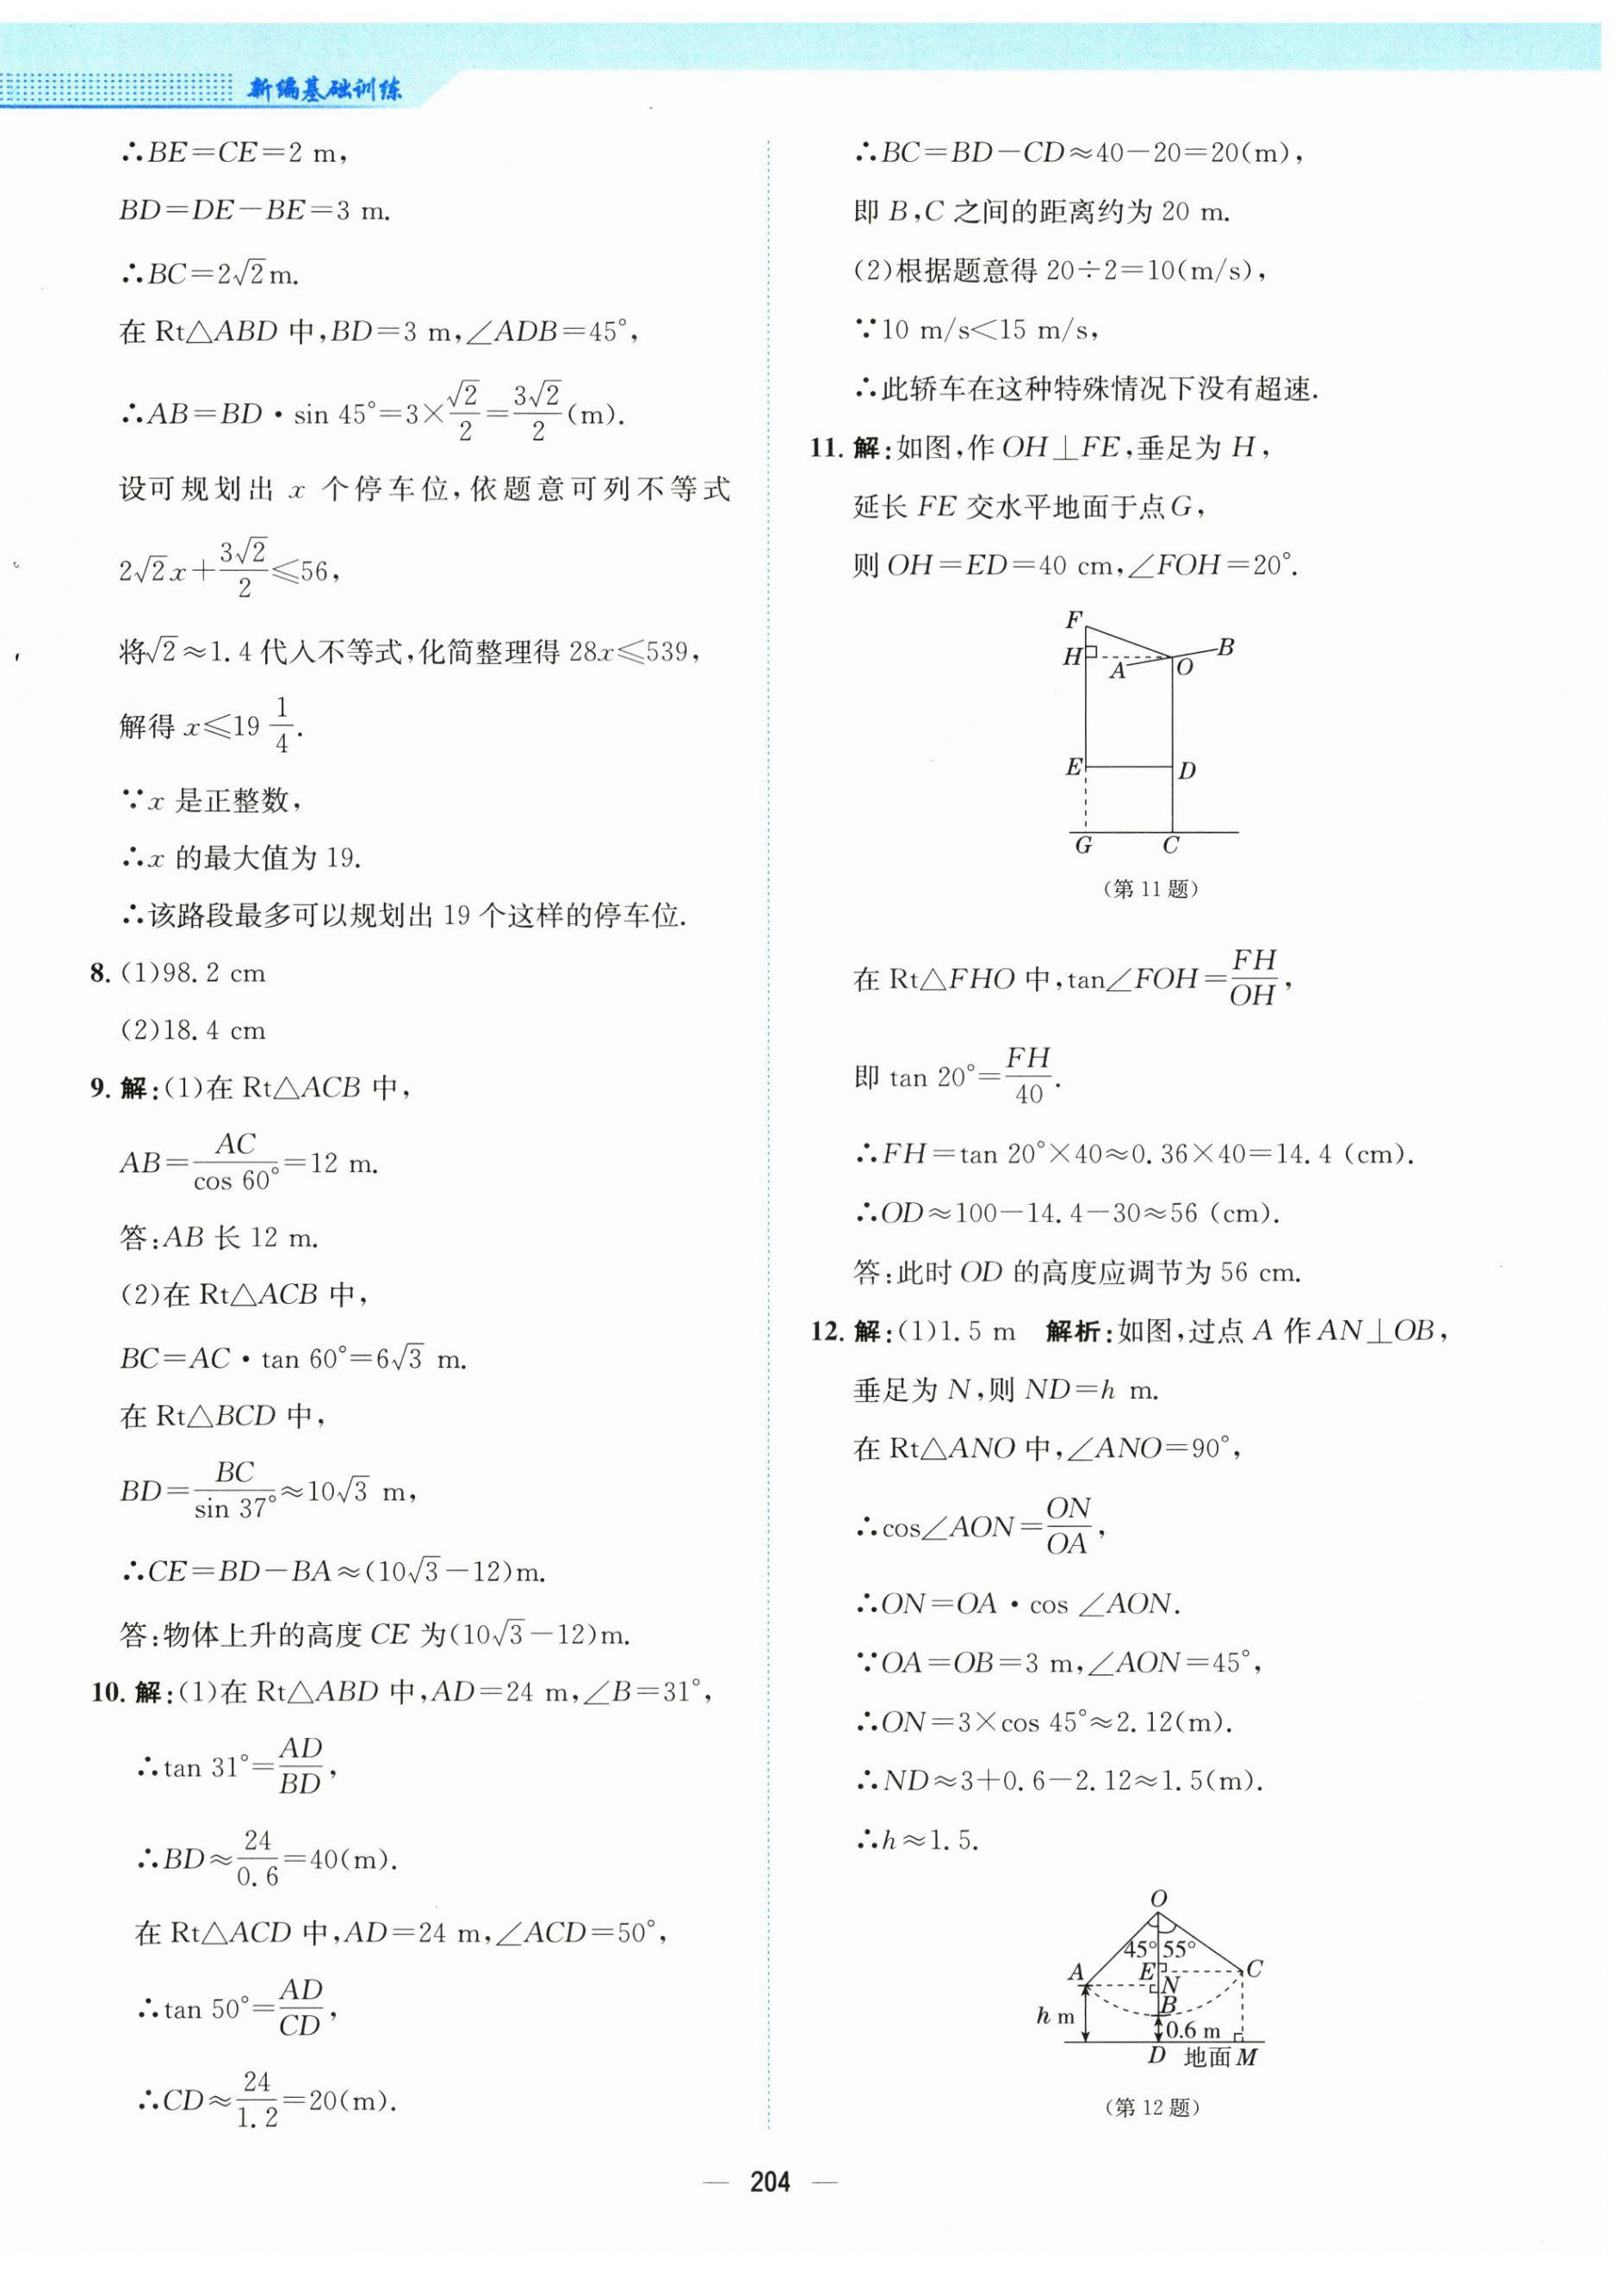 新编基础训练
∴BE=CE=2 m,
BD=DE-BE=3 m.
∴BC=2√2 m.
在 Rt△ABD 中,BD=3 m,∠ADB=45°,
∴AB=BD·sin 45°=3×√2/2=3√2/2(m).
设可规划出 x 个停车位,依题意可列不等式
2√2x+3√2/2≤56,
将√2≈1.4代入不等式,化简整理得 28x≤539,
解得 x≤19 1/4.
∵x 是正整数,
∴x 的最大值为 19.
∴该路段最多可以规划出 19 个这样的停车位.
8. (1)98.2 cm
(2)18.4 cm
9. 解:(1)在 Rt△ACB 中,
AB=AC/cos 60°=12 m.
答:AB 长 12 m.
(2)在 Rt△ACB 中,
BC=AC·tan 60°=6√3 m.
在 Rt△BCD 中,
BD=BC/sin 37°≈10√3 m,
∴CE=BD-BA≈(10√3-12)m.
答:物体上升的高度 CE 为(10√3-12)m.
10. 解:(1)在 Rt△ABD 中,AD=24 m,∠B=31°,
∴tan 31°=AD/BD,
∴BD≈24/0.6=40(m).
在 Rt△ACD 中,AD=24 m,∠ACD=50°,
∴tan 50°=AD/CD,
∴CD≈24/1.2=20(m).
∴BC=BD-CD≈40-20=20(m),
即 B,C 之间的距离约为 20 m.
(2)根据题意得 20÷2=10(m/s),
∵10 m/s<15 m/s,
∴此轿车在这种特殊情况下没有超速.
11. 解:如图,作 OH⊥FE,垂足为 H,
延长 FE 交水平地面于点G,
则 OH=ED=40 cm,∠FOH=20°.
F
H
A
O
B
E
D
G
C
(第 11 题)
在 Rt△FHO 中,tan∠FOH=FH/OH,
即 tan 20°=FH/40.
∴FH=tan 20°×40≈0.36×40=14.4 (cm).
∴OD≈100-14.4-30≈56 (cm).
答:此时 OD 的高度应调节为 56 cm.
12. 解:(1)1.5 m 解析:如图,过点 A 作 AN⊥OB,
垂足为 N,则 ND=h m.
在 Rt△ANO 中,∠ANO=90°,
∴cos∠AON=ON/OA,
∴ON=OA·cos ∠AON.
∵OA=OB=3 m,∠AON=45°,
∴ON=3×cos 45°≈2.12(m).
∴ND≈3+0.6-2.12≈1.5(m).
∴h≈1.5.
O
45° 55°
A
E
C
N
B
h m
0.6 m
D 地面 M
(第 12 题)
— 204 —